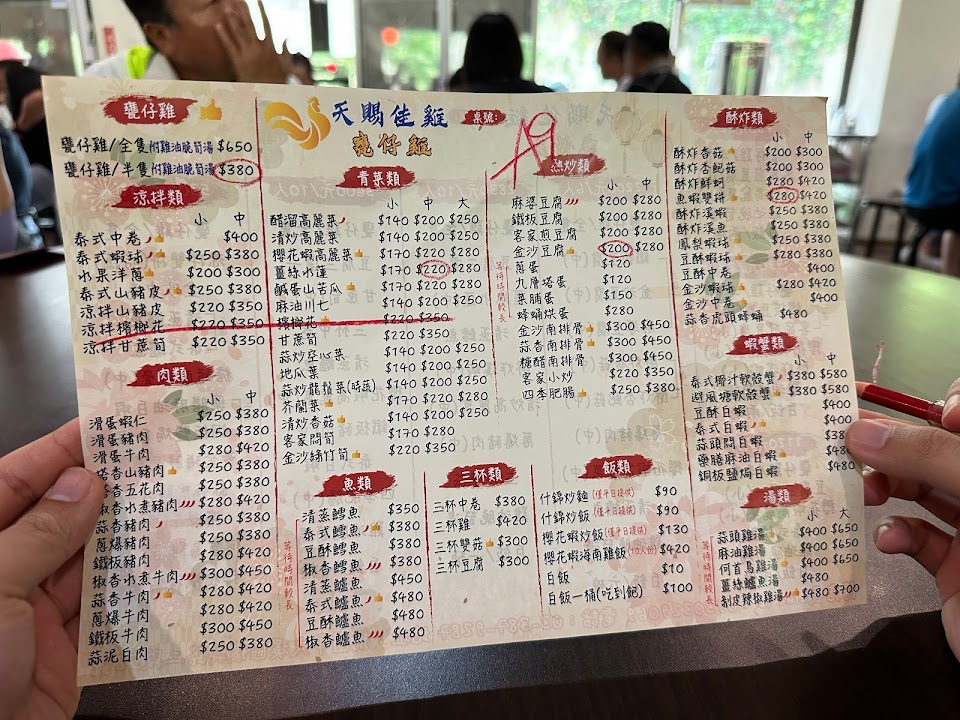 甕仔雞
甕仔雞/全隻 附雞油脆筍湯 $650
甕仔雞/半隻 附雞油脆筍湯 $380
涼拌類
小 中
泰式中卷 $400
泰式蝦球 $250 $380
水果洋蔥 $200 $300
泰式山豬皮 $250 $380
涼拌山豬皮 $220 $350
涼拌檳榔花 $220 $350
涼拌甘蔗筍 $220 $350
肉類
小 中
滑蛋蝦仁 $250 $380
滑蛋豬肉 $250 $380
滑蛋牛肉 $280 $420
塔香山豬肉 $250 $380
塔香五花肉 $250 $380
椒香水煮豬肉 $280 $420
蒜香豬肉 $250 $380
蔥爆豬肉 $250 $380
鐵板豬肉 $280 $420
椒香水煮牛肉 $300 $450
蒜香牛肉 $280 $420
蔥爆牛肉 $280 $420
鐵板牛肉 $300 $450
蒜泥白肉 $250 $380
天賜佳雞
甕仔雞
桌號:
A9
青菜類
小 中 大
醋溜高麗菜 $140 $200 $250
清炒高麗菜 $140 $200 $250
櫻花蝦高麗菜 $170 $220 $280
薑絲水蓮 $170 $220 $280
鹹蛋山苦瓜 $170 $220 $280
麻油川七 $140 $200 $250
檳榔花 $220 $350
甘蔗筍 $220 $350
蒜炒空心菜 $140 $200 $250
地瓜葉 $140 $200 $250
蒜炒龍鬚菜(時蔬) $140 $200 $250
芥蘭菜 $170 $220 $280
清炒香菇 $140 $200 $250
客家悶筍 $170 $280
金沙綠竹筍 $220 $350
魚類
清蒸鱈魚 $350
泰式鱈魚 $380
豆酥鱈魚 $380
椒香鱈魚 $380
清蒸鱸魚 $450
泰式鱸魚 $480
豆酥鱸魚 $480
椒香鱸魚 $480
等待時間較長
三杯類
三杯中卷 $380
三杯雞 $420
三杯雙菇 $300
三杯豆腐 $300
熱炒類
小 中
麻婆豆腐 $200 $280
鐵板豆腐 $200 $280
客家煎豆腐 $200 $280
金沙豆腐 $200 $280
蔥蛋 $120
九層塔蛋 $120
菜脯蛋 $150
蜂蛹烘蛋 $280
金沙南排骨 $300 $450
蒜香南排骨 $300 $450
糖醋南排骨 $300 $450
客家小炒 $220 $350
四季肥腸 $250 $380
等待時間較長
飯類
什錦炒麵(僅平日提供) $90
什錦炒飯(僅平日提供) $90
櫻花蝦炒飯(僅平日提供) $130
櫻花蝦海南雞飯(10人份) $420
白飯 $10
白飯一桶(吃到飽) $100
酥炸類
小 中
酥炸香菇 $200 $300
酥炸杏鮑菇 $200 $300
酥炸鮮蚵 $280 $420
魚蝦雙拼 $280 $420
酥炸溪蝦 $250 $380
酥炸溪魚 $250 $380
鳳梨蝦球 $250 $380
豆酥蝦球 $250 $380
豆酥中卷 $400
金沙蝦球 $280 $420
金沙中卷 $400
蒜香虎頭蜂蛹 $480
蝦蟹類
小 中
泰式椰汁軟殼蟹 $380 $580
避風塘軟殼蟹 $380 $580
豆酥白蝦 $400
泰式白蝦 $400
蒜頭悶白蝦 $380
藥膳麻油白蝦 $480
銅板鹽焗白蝦 $480
湯類
小 大
蒜頭雞湯 $400 $650
麻油雞湯 $400 $650
何首烏雞湯 $400 $650
薑絲鱸魚湯 $480
剝皮辣椒雞湯 $480 $700
等待時間較長